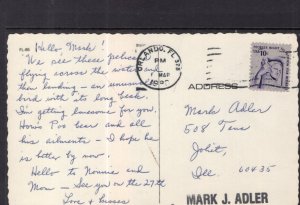 Hello Mark!
We see these pelicans
flying across the water and
then landing - an unusual
bird with its long beak.
I'm getting lonesome for you,
Honis Poo bear and all
his ailments - I hope he
is better by now
Hello to Nonnie and
Mom - See you on the 27th
Love & kisses
ORLANDO, FL 328
PM
MAR
10c
ADDRESS
Mark Adler
508 Tena
Joliet
Ill. 60435
MARK J. ADLER